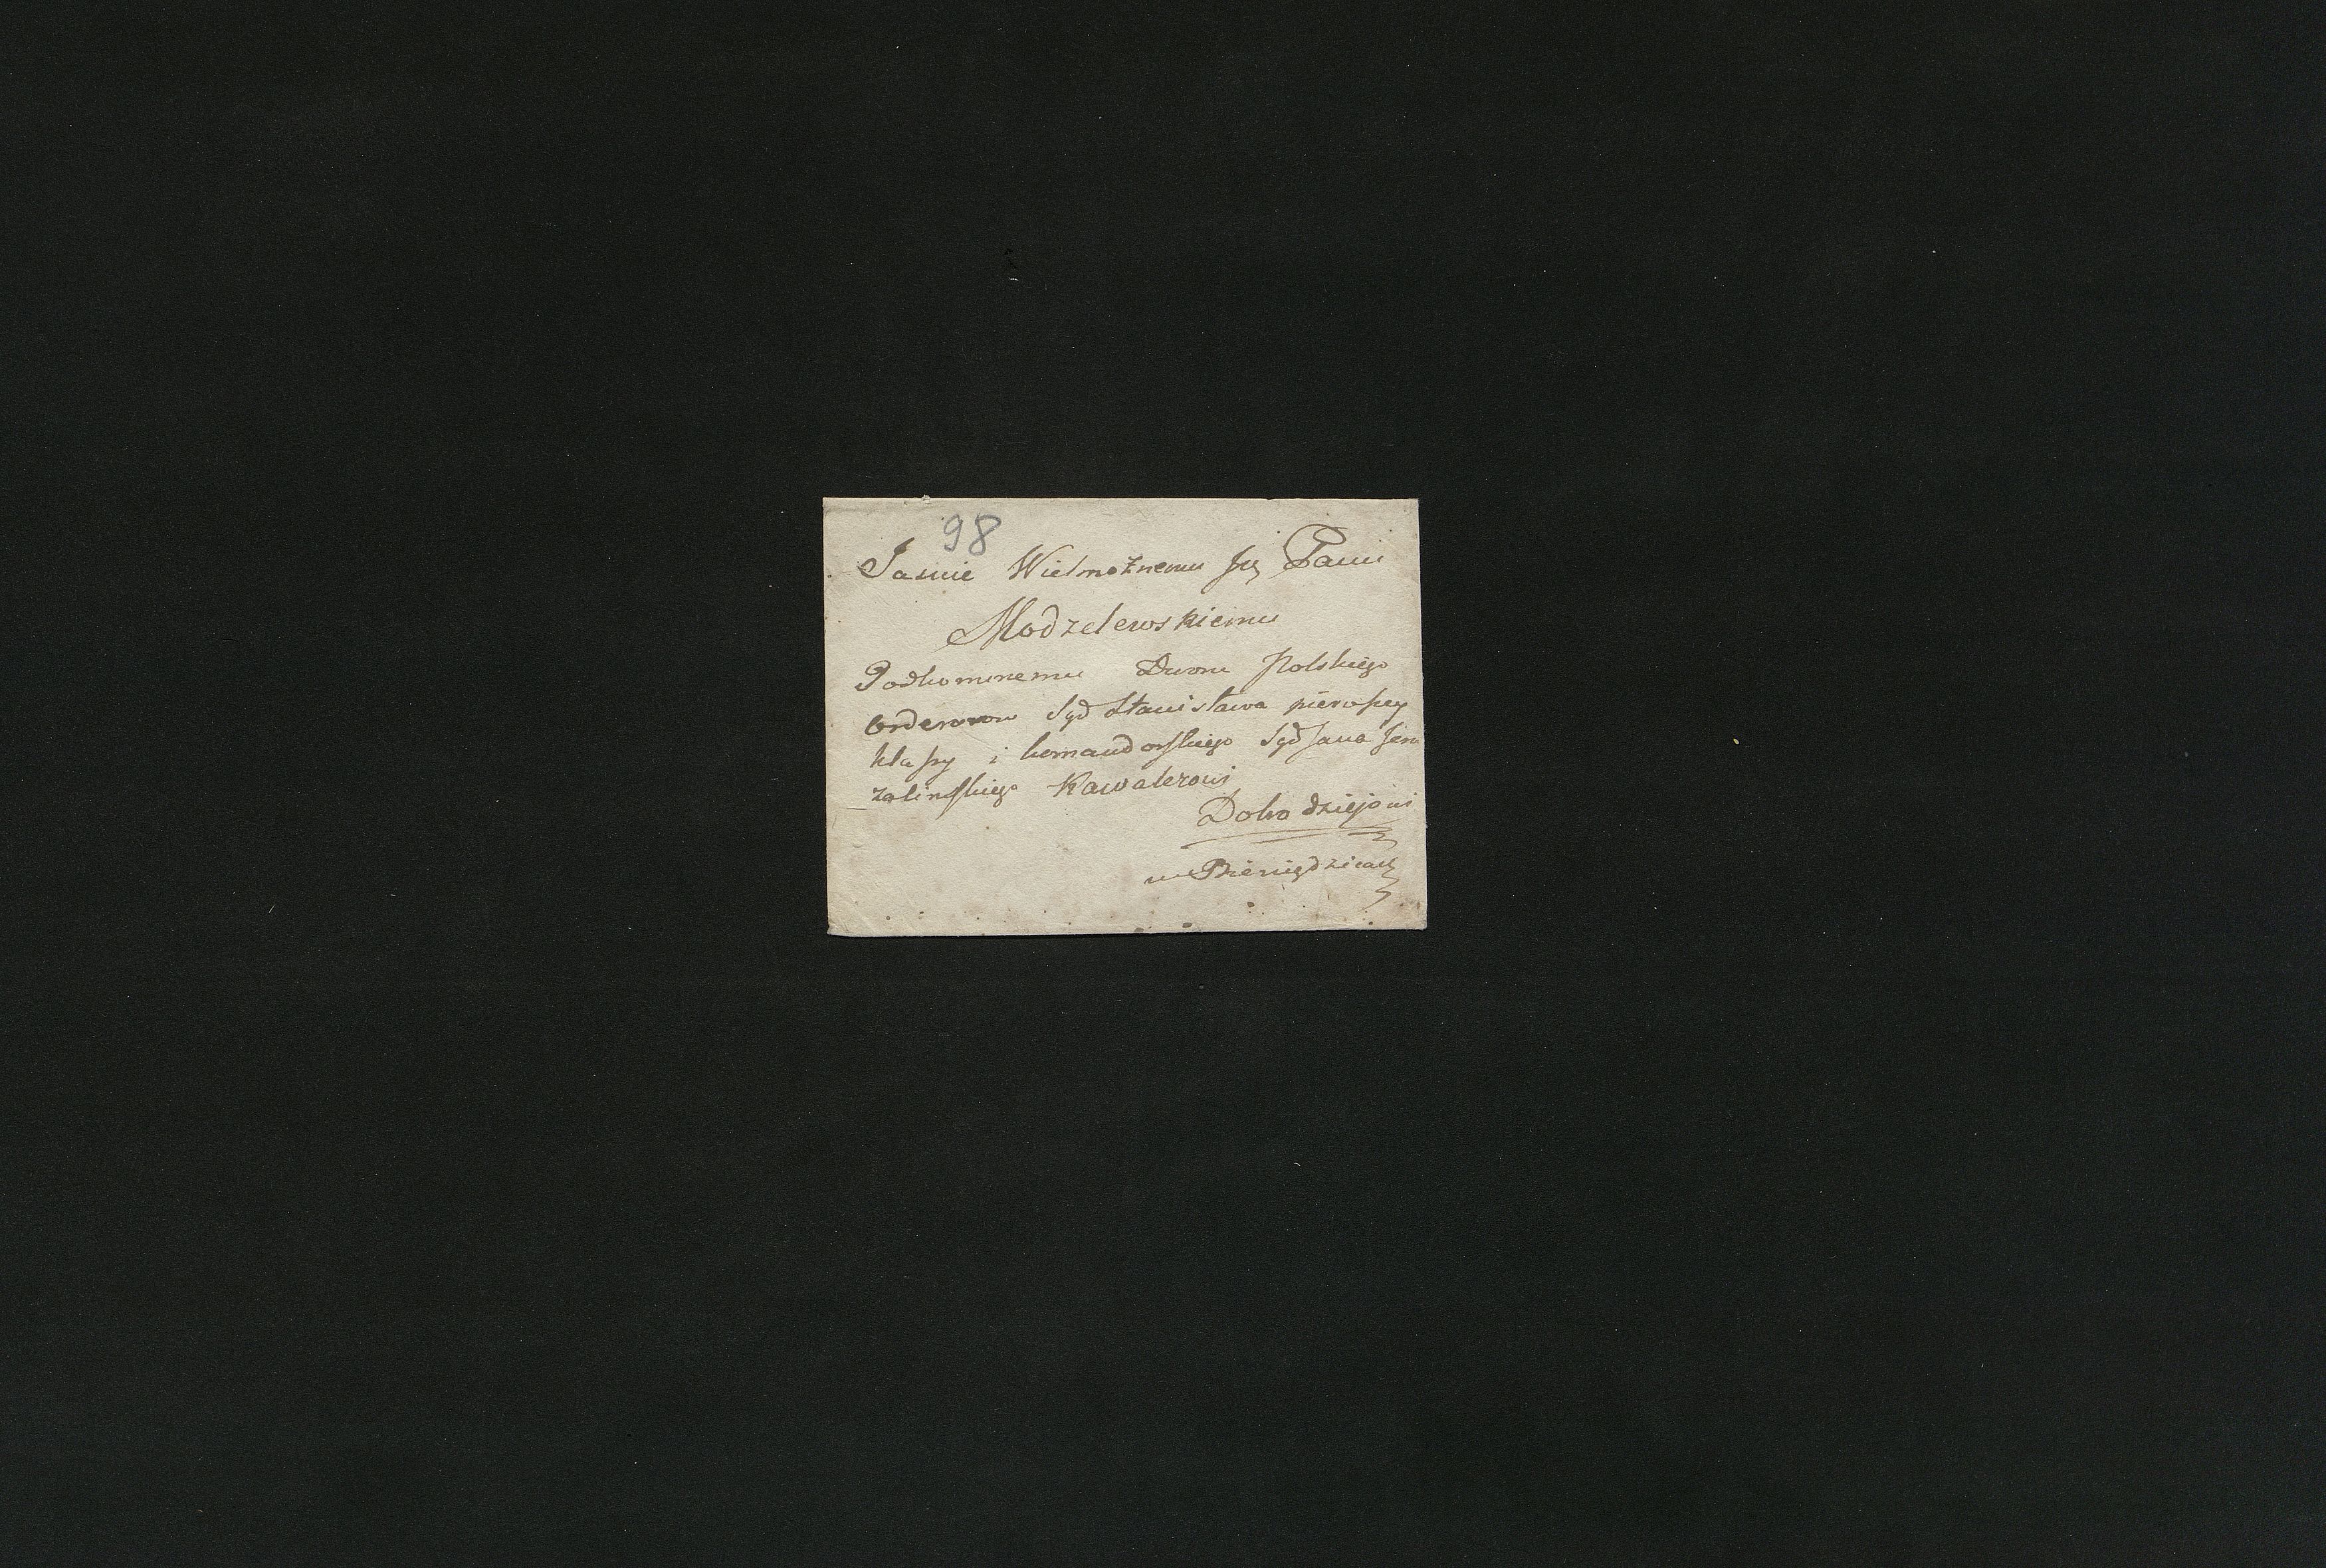 98
Jasnie Wielmożnemu Jeg Panu
Modzelewskiemu
Podkomorzemu Dworu Polskiego
Orderow Sgo Stanisława pierwszey
klassy i komandorskiego Sgo Jana Jero
zolimskiego Kawalerowi
Dobrodziejowi
w Bieniędzicach